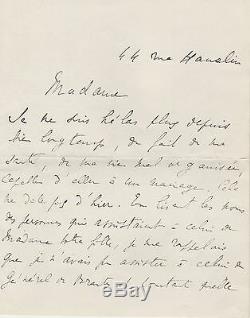 44 rue Hamelin
Madame
Je ne suis hélas plus depuis
bien longtemps, du fait de ma
santé, de ma vie mal organisée,
d'aller à un mariage. Cela
ne date pas d'hier. En lisant les noms
des personnes qui assistaient à celui de
Madame votre fille, je me rappelais
que je n'avais pu assister à celui du
Général de